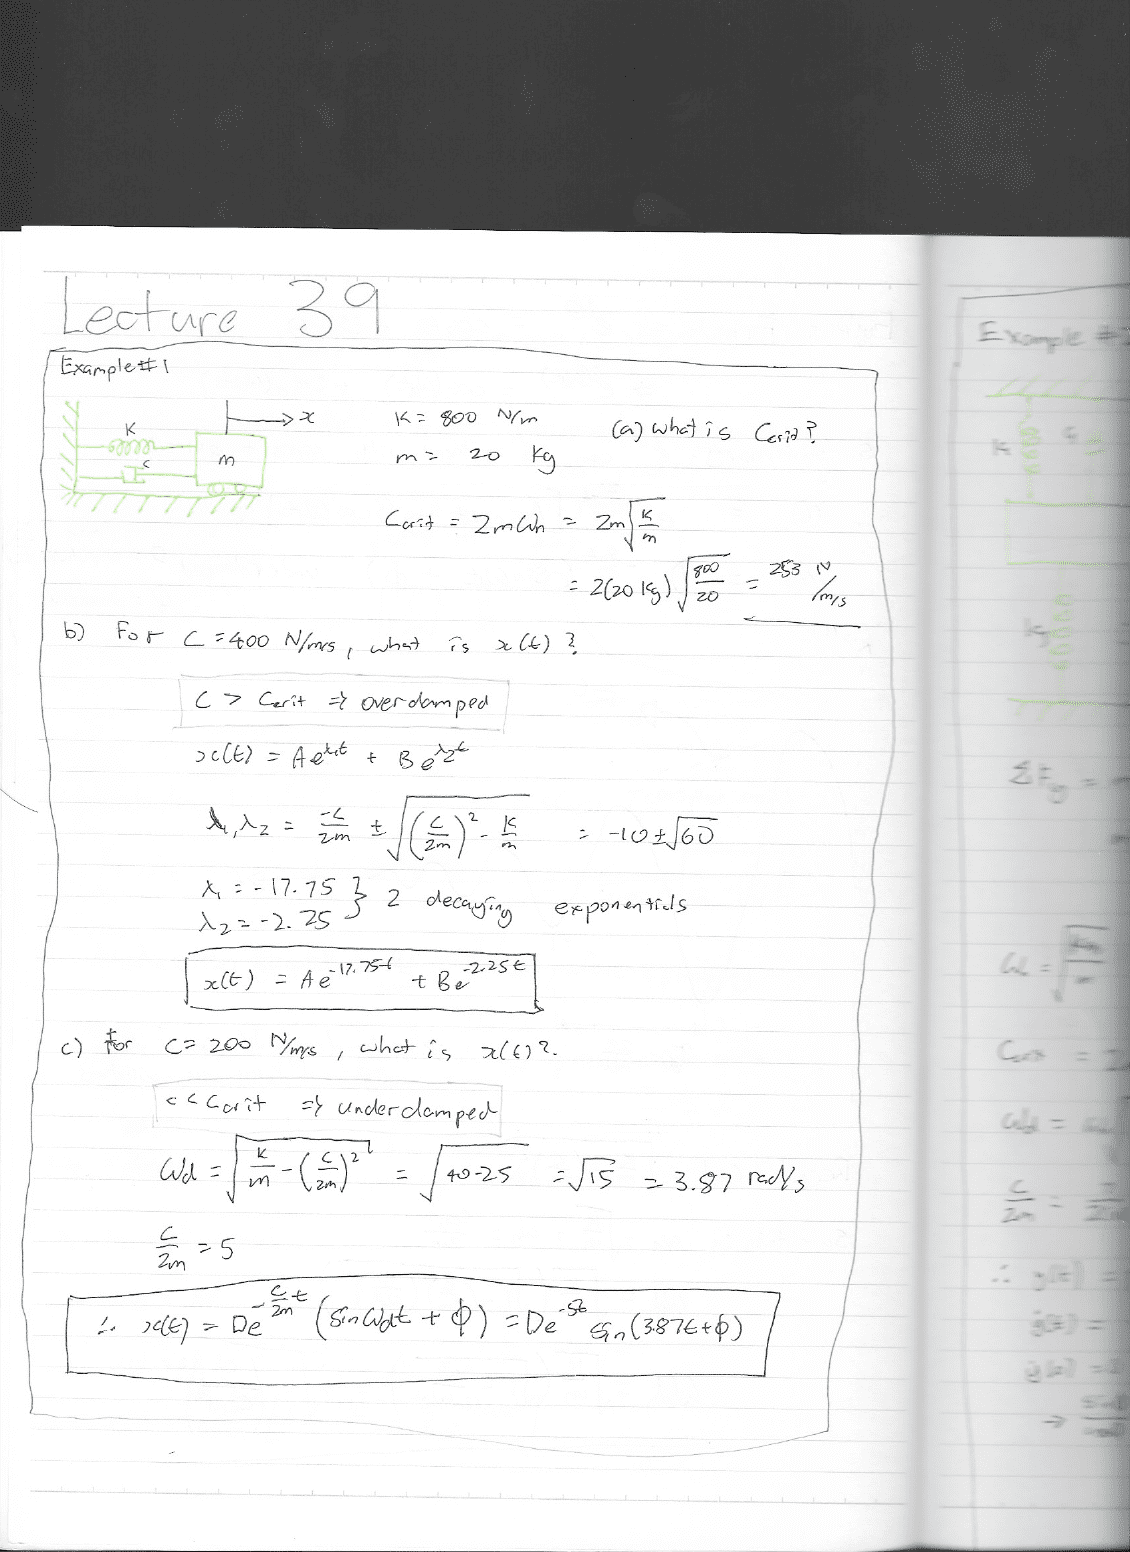 Lecture 39
Example #1
K
c
m
x
K = 800 N/m
m = 20 kg
(a) what is Ccrit?
Ccrit = 2mωn = 2m√(K/m)
= 2(20 kg) √(800/20) = 253 N/m/s
b) For C = 400 N/m/s, what is x(t)?
C > Ccrit ⇒ overdamped
x(t) = Ae^λ₁t + Be^λ₂t
λ₁, λ₂ = -C/2m ± √((C/2m)² - K/m) = -10 ± √60
λ₁ = -17.75 } 2 decaying exponentials
λ₂ = -2.25
x(t) = Ae^-17.75t + Be^-2.25t
c) for C = 200 N/m/s, what is x(t)?.
c < Ccrit ⇒ underdamped
ωd = √(K/m - (C/2m)²) = √(40-25) = √15 = 3.87 rad/s
C/2m = 5
∴ x(t) = De^-(C/2m)t (sin ωdt + φ) = De^-5t sin(3.87t+φ)
Example #
K